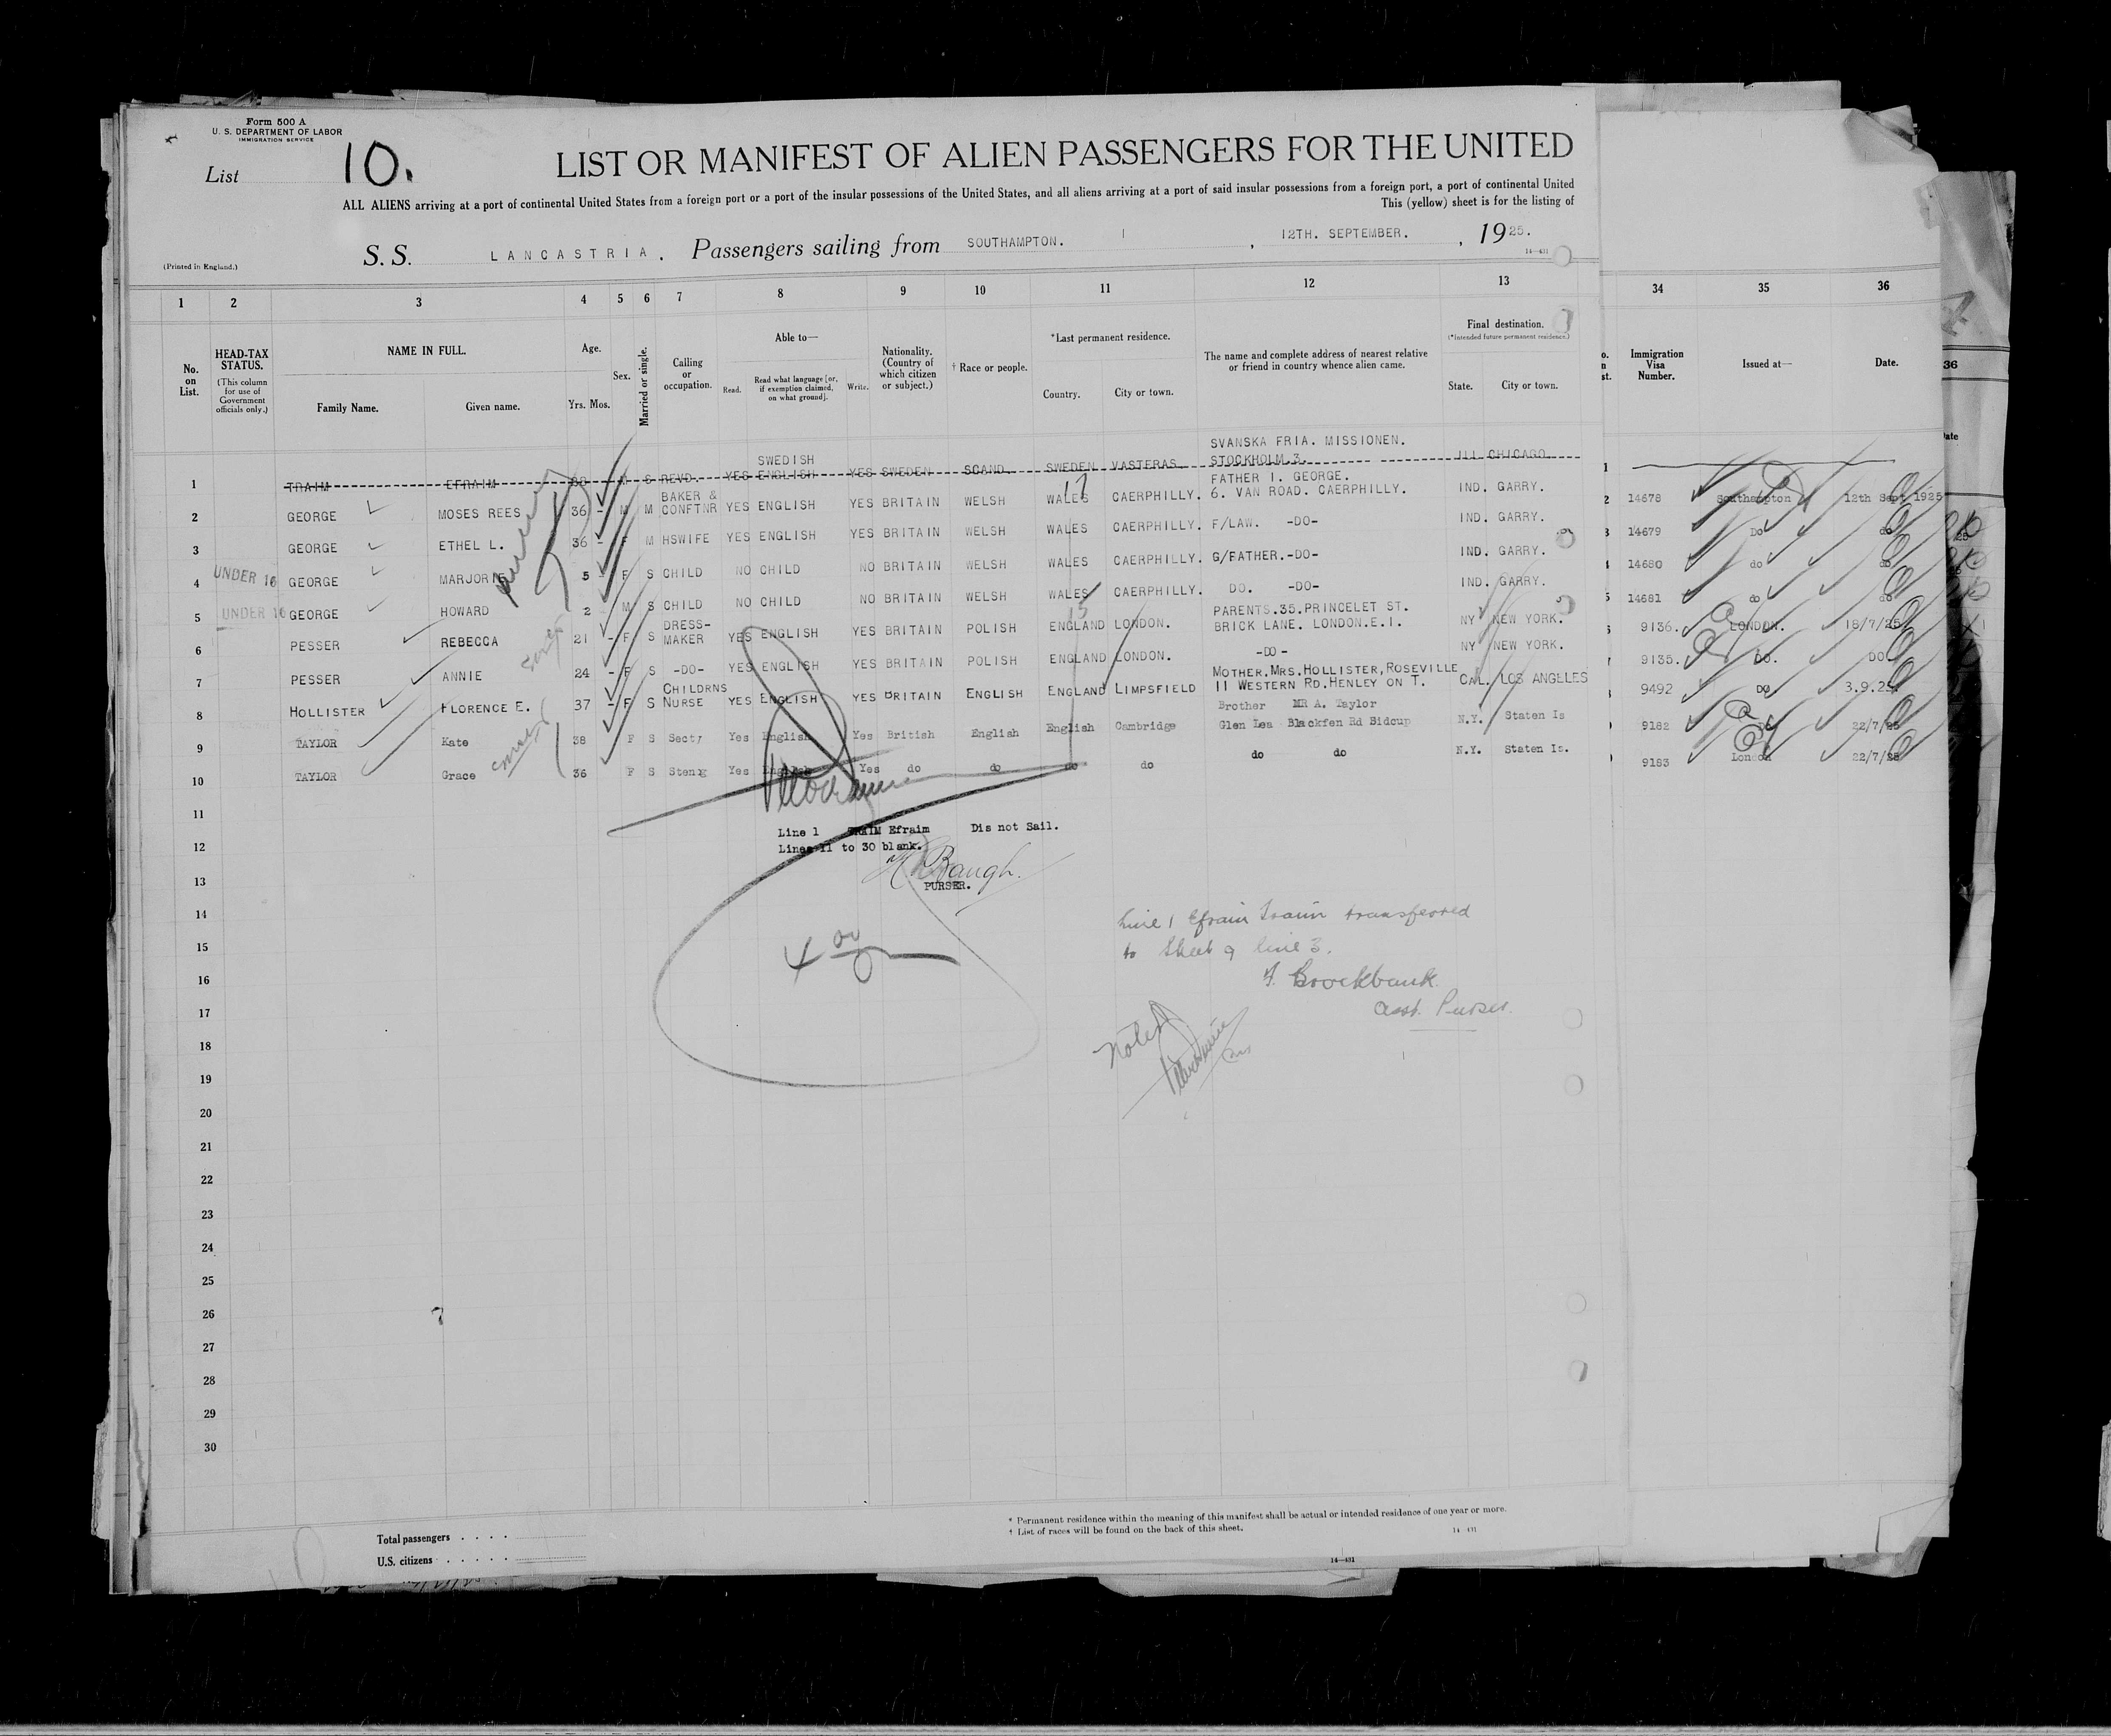 Form 500 A
U. S. DEPARTMENT OF LABOR
IMMIGRATION SERVICE
List 10.
LIST OR MANIFEST OF ALIEN PASSENGERS FOR THE UNITED
ALL ALIENS arriving at a port of continental United States from a foreign port or a port of the insular possessions of the United States, and all aliens arriving at a port of said insular possessions from a foreign port, a port of continental United
This (yellow) sheet is for the listing of
S. S. LANCASTRIA. Passengers sailing from SOUTHAMPTON. , 12TH. SEPTEMBER. , 1925.
(Printed in England.)
14—431
1 2 3 4 5 6 7 8 9 10 11 12 13 34 35 36
No. on List.
HEAD-TAX STATUS.
(This column for use of Government officials only.)
NAME IN FULL.
Family Name. Given name.
Age.
Yrs. Mos.
Sex.
Married or single.
Calling or occupation.
Able to—
Read. Read what language [or, if exemption claimed, on what ground]. Write.
Nationality. (Country of which citizen or subject.)
† Race or people.
*Last permanent residence.
Country. City or town.
The name and complete address of nearest relative or friend in country whence alien came.
Final destination.
(*Intended future permanent residence.)
State. City or town.
Immigration Visa Number.
Issued at—
Date.
36
SVANSKA FRIA. MISSIONEN.
1 TRAIM EFRAIM 38 M S REVD. YES SWEDISH ENGLISH YES SWEDEN SCAND. SWEDEN VASTERAS. STOCKHOLM.3. ILL CHICAGO.
FATHER I. GEORGE.
2 GEORGE MOSES REES 36 - M M BAKER & CONFTNR YES ENGLISH YES BRITAIN WELSH WALES CAERPHILLY. 6. VAN ROAD. CAERPHILLY. IND. GARRY. 14678 Southampton 12th Sept 1925
3 GEORGE ETHEL L. 36 - F M HSWIFE YES ENGLISH YES BRITAIN WELSH WALES CAERPHILLY. F/LAW. -DO- IND. GARRY. 14679 Do do
4 UNDER 16 GEORGE MARJORIE 5 - F S CHILD NO CHILD NO BRITAIN WELSH WALES CAERPHILLY. G/FATHER.-DO- IND. GARRY. 14680 do do
5 UNDER 16 GEORGE HOWARD 2 - M S CHILD NO CHILD NO BRITAIN WELSH WALES CAERPHILLY. DO. -DO- IND. GARRY. 14681 do do
PARENTS.35.PRINCELET ST.
6 PESSER REBECCA 21 - F S DRESS-MAKER YES ENGLISH YES BRITAIN POLISH ENGLAND LONDON. BRICK LANE. LONDON.E.1. NY NEW YORK. 9136. LONDON. 18/7/25
7 PESSER ANNIE 24 - F S -DO- YES ENGLISH YES BRITAIN POLISH ENGLAND LONDON. -DO- NY NEW YORK. 9135. DO. DO.
MOTHER.MRS.HOLLISTER,ROSEVILLE
8 HOLLISTER FLORENCE E. 37 - F S CHILDRNS NURSE YES ENGLISH YES BRITAIN ENGLISH ENGLAND LIMPSFIELD 11 WESTERN RD.HENLEY ON T. CAL. LOS ANGELES 9492 DO. 3.9.25.
Brother MR A. Taylor
9 TAYLOR Kate 38 F S Secty Yes English Yes British English English Cambridge Glen Lea Blackfen Rd Sidcup N.Y. Staten Is 9182 22/7/25
10 TAYLOR Grace 36 F S Steng Yes English Yes do do do do do do N.Y. Staten Is. 9183 London 22/7/25
11
Line 1 TRAIM Efraim Dis not Sail.
12
Lines 11 to 30 blank.
H Baugh.
13
PURSER.
14
Line 1 Efraim Traim transferred
15
to Sheet 9 line 3.
16
F. Brockbank.
17
Asst. Purser.
18
Noted
19
20
21
22
23
24
25
26
27
28
29
30
Total passengers . . . .
U.S. citizens . . . . .
* Permanent residence within the meaning of this manifest shall be actual or intended residence of one year or more.
† List of races will be found on the back of this sheet.
14 431
14—431